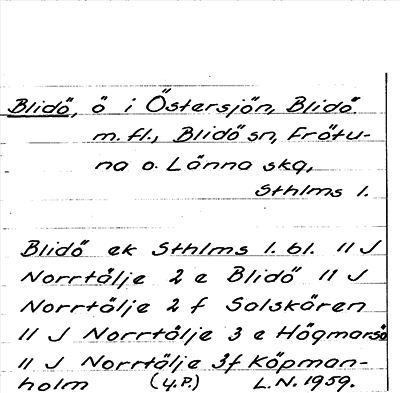 Blidö, ö i Östersjön, Blidö
m.fl., Blidö sn, Frötu-
na o. Länna skg,
Sthlms l.
Blidö ek Sthlms l. bl. 11 J
Norrtälje 2 e Blidö 11 J
Norrtälje 2 f Solskären
11 J Norrtälje 3 e Högmarsö
11 J Norrtälje 3f Köpman-
holm (y.P.) L.N. 1959.